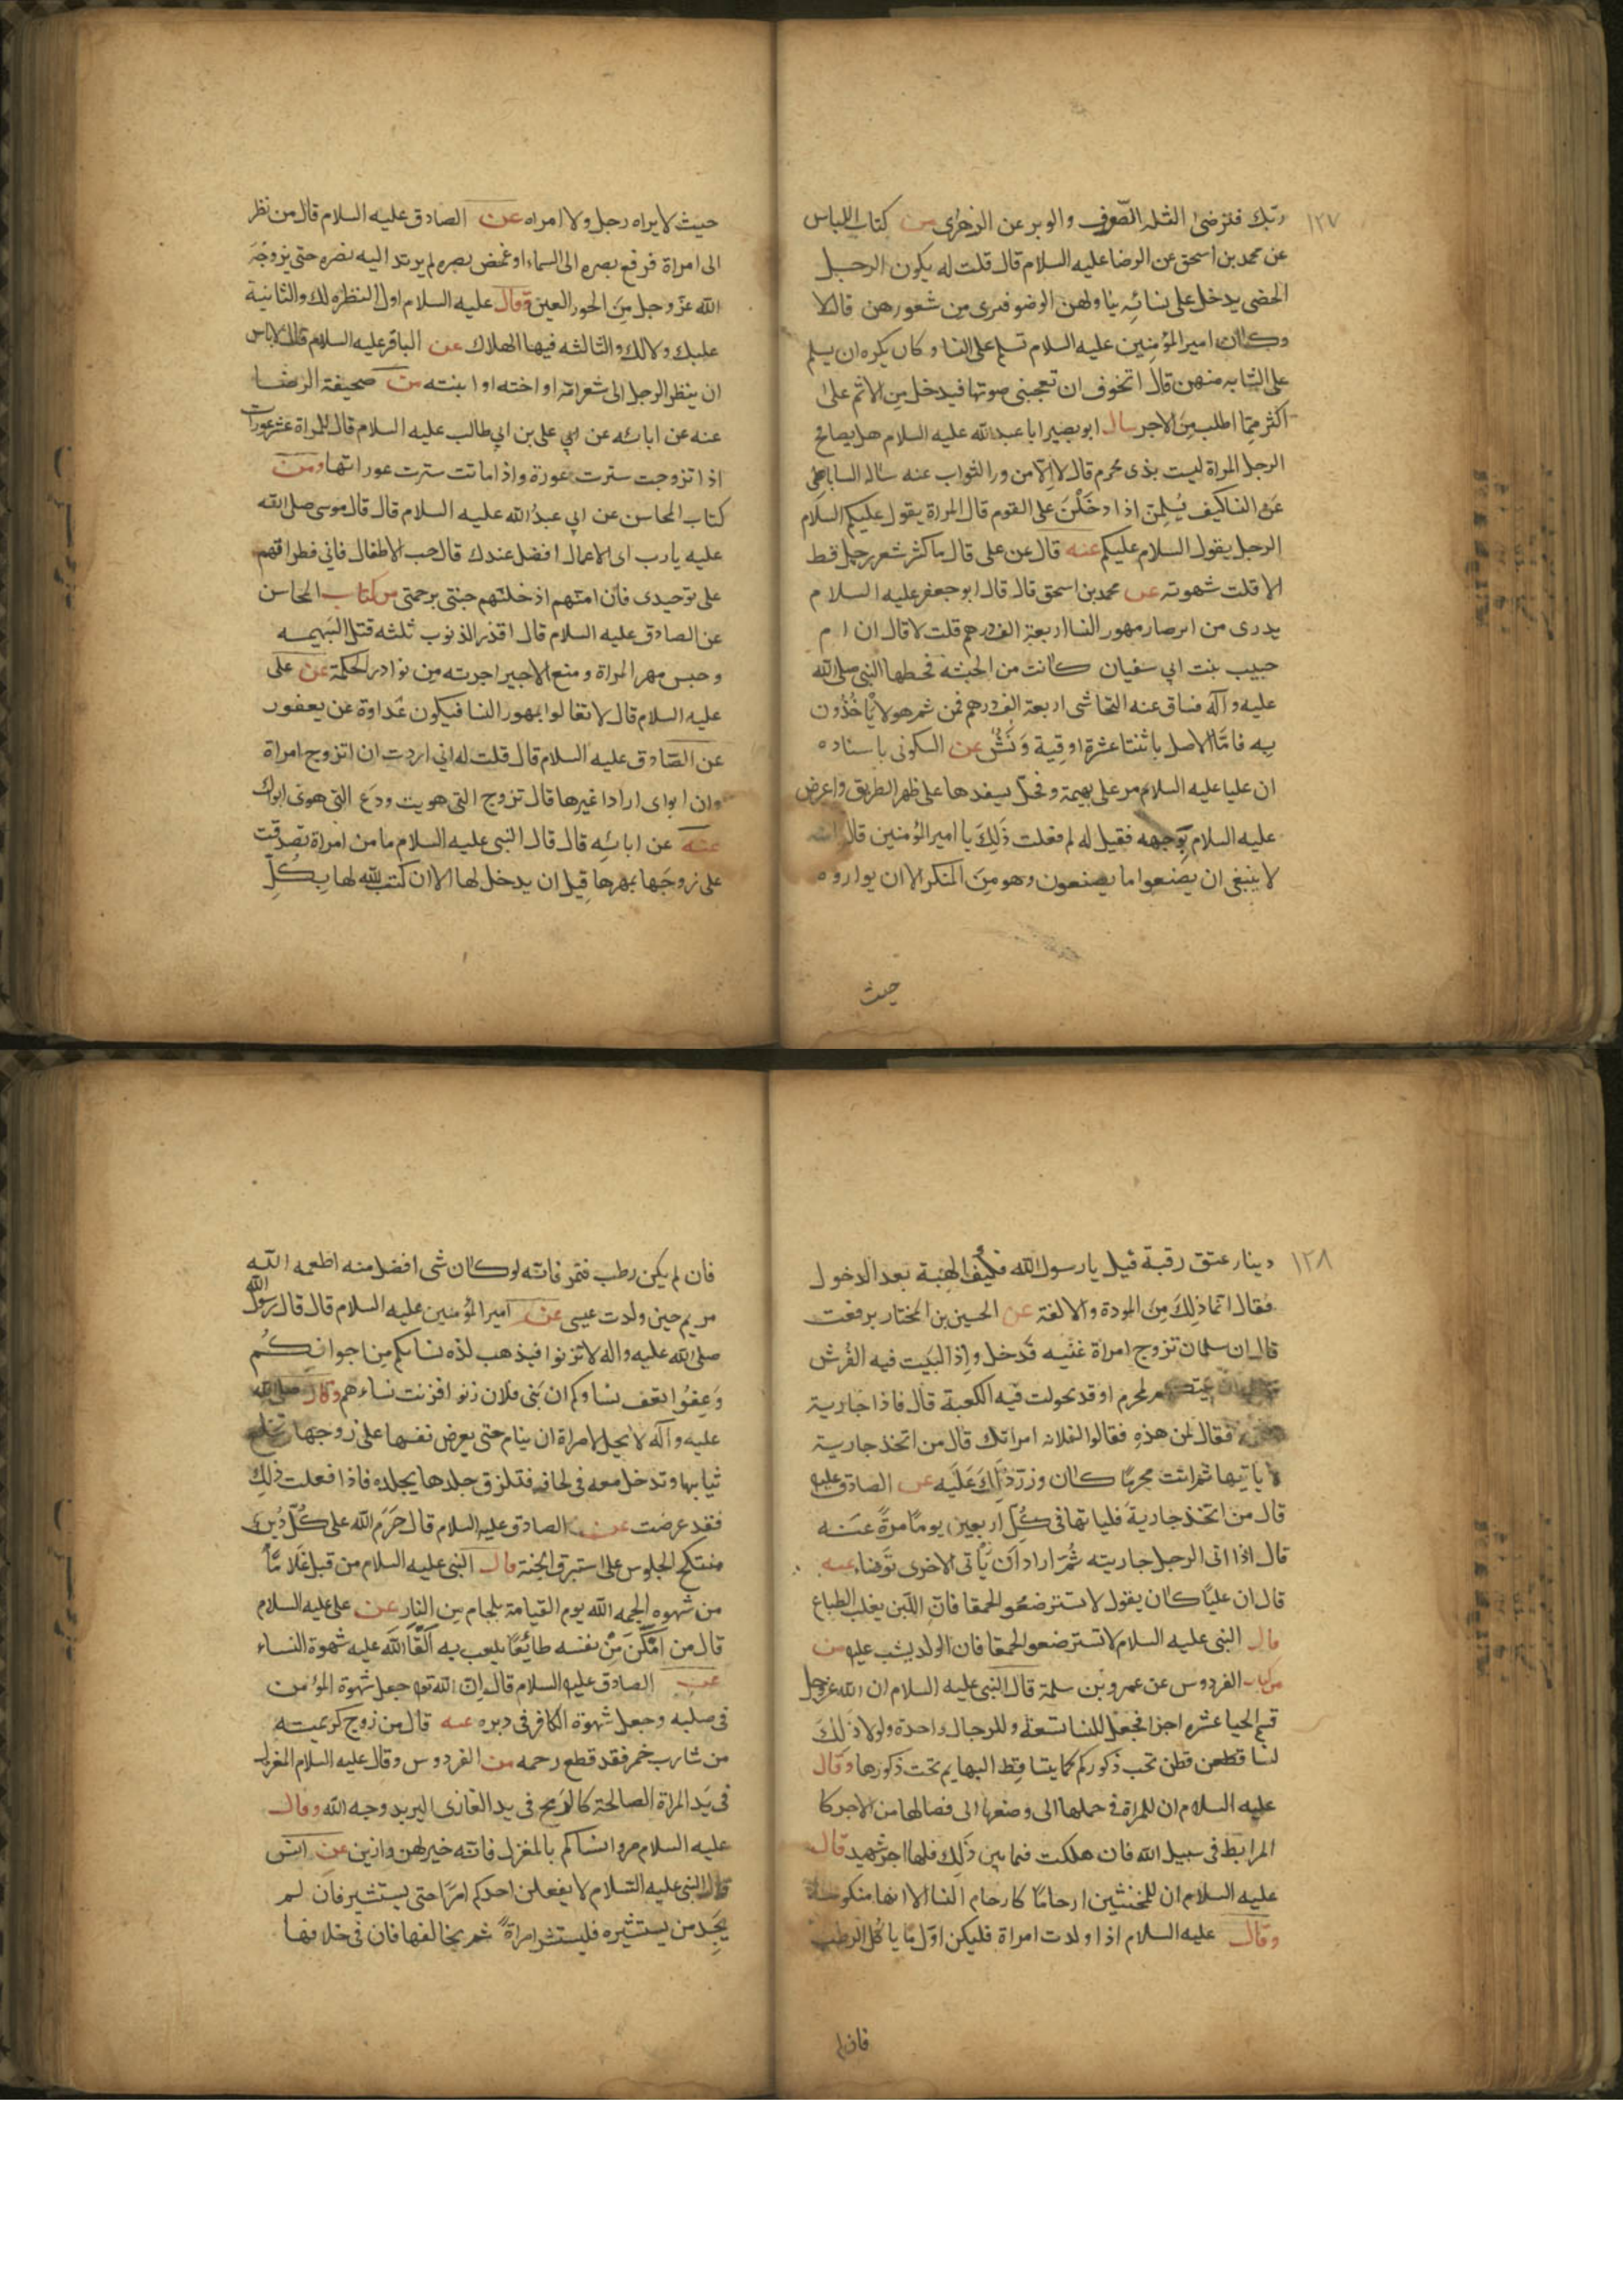 ١٢٧
ربك فترضى الثلة الصوف والوبر عن الزهرى من كتاب اللباس
عن محمد بن اسحق عن الرضا عليه السلام قال قلت له يكون الرجل
الخصى يدخل على نسائه يناولهن الوضو فيرى من شعورهن قال لا
وكان امير المؤمنين عليه السلام تسلم على النسا وكان يكره ان يسلم
على الشابه منهن قال اتخوف ان تعجبنى صوتها فيدخل من الاثم على
اكثر مما اطلب من الاجر سال ابو بصير ابا عبد الله عليه السلام هل يصافح
الرجل المراة ليست بذى محرم قال لا الا من ورا الثواب عنه ساله الساباطى
عن النسا كيف يسلمن اذا دخلن على القوم قال المراة يقول عليكم السلام
الرجل يقول السلام عليكم عنه قال عن على قال ما كثر شعر رجل قط
الا قلت شهوته عن محمد بن اسحق قال قال ابو جعفر عليه السلام
يدرى من اين صار مهور النسا اربعة الف درهم قلت لا قال ان ام
حبيب بنت ابي سفيان كانت من الحبشة فخطبها النبى صلى الله
عليه وآله فساق عنه النجاشى اربعة الف درهم فمن ثم هولا ياخذون
به فاما الاصل باثنتا عشرة اوقية ونش عن السكونى باسناده
ان عليا عليه السلام مر على بهيمة وفحل يسفدها على ظهر الطريق واعرض
عليه السلام بوجهه فقيل له لم فعلت ذلك يا امير المؤمنين قال انه
لا ينبغى ان يصنعوا ما يصنعون وهو من المنكر الا ان يواروه
حيث
حيث لا يراه رجل ولا امراه عن الصادق عليه السلام قال من نظر
الى امراة فرفع بصره الى السماء او غمض بصره لم يرتد اليه بصره حتى يزوجه
الله عز وجل من الحور العين وقال عليه السلام اول النظره لك والثانية
عليك ولا لك والثالثه فيها الهلاك عن الباقر عليه السلام قال لا باس
ان ينظر الرجل الى شعر امه او اخته او ابنته من صحيفة الرضا
عنه عن ابائه عن ابي على بن ابي طالب عليه السلام قال للمراة عشر عورات
اذا تزوجت سترت عورة واذا ماتت سترت عوراتها ومن
كتاب المحاسن عن ابي عبد الله عليه السلام قال قال موسى صلى الله
عليه يارب اى الاعمال افضل عندك قال حب الاطفال فانى فطراتهم
على توحيدى فان امتهم ادخلتهم جنتى برحمتى من كتاب المحاسن
عن الصادق عليه السلام قال اقذر الذنوب ثلثه قتل البهيمه
وحبس مهر المراة ومنع الاجير اجرته من نوادر الحكمة عن على
عليه السلام قال لا تغالوا بمهور النسا فيكون عداوة عن يعفور
عن الصادق عليه السلام قال قلت له انى اردت ان اتزوج امراة
وان ابواى ارادا غيرها قال تزوج التى هويت ودع التى هوى ابواك
عنه عن ابائه قال قال النبى عليه السلام ما من امراة تصدقت
على زوجها بمهرها قبل ان يدخل لها الا ان كتب الله لها بكل
١٢٨
دينار عتق رقبة قيل يا رسول الله فكيف الهبة بعد الدخول
فقال انما ذلك من المودة والالفة عن الحسين بن المختار برفعت
قال ان سلمان تزوج امراة غنيه فدخل واذ البيت فيه الفرش
لمحرم او قد تحولت فيه الكعبة قال فاذا جارية
فقال لمن هذه فقالوا لفلانه امراتك قال من اتخذ جارية
لا ياتيها ثم اتت محرما كان وزر ذلك عليه عن الصادق عليه
قال من اتخذ جارية فلياتها فى كل اربعين يوما مرة عنه
قال اذا اتى الرجل جاريته ثم اراد ان ياتى الاخرى توضاء عنه
قال ان عليا كان يقول لا تسترضعو الحمقا فان اللبن يغلب الطباع
قال النبى عليه السلام لا تسترضعو الحمقا فان الولد يشب عليه من
من كتاب الفردوس عن عمرو بن سلمة قال النبى عليه السلام ان الله عز وجل
قسم الحيا عشره اجزا فجعل للنسا تسعة وللرجال واحدة ولولا ذلك
لتساقطعن قطن تحت ذكوركم كما يتساقط البهايم تحت ذكورها وقال
عليه السلام ان للمراة فى حملها الى وضعها الى فصالها من الاجر كا
المرابط فى سبيل الله فان هلكت فيما بين ذلك فلها اجر شهيد قال
عليه السلام ان للمخنثين ارحاما كارحام النسا الا انها منكوسة
وقال عليه السلام اذا ولدت امراة فليكن اول ما ياكل الرطب
فان لم
فان لم يكن رطب فتمر فانه لو كان شى افضل منه اطعمه الله
مريم حين ولدت عيسى عن امير المؤمنين عليه السلام قال قال رسول الله
صلى الله عليه واله لا تزنوا فيذهب لذه نسائكم من اجوافكم
وعفوا يعف نساوكم ان بنى فلان زنو افزنت نساءهم وقال صلى الله
عليه وآله لا يحل لامراة ان ينام حتى يعرض نفسها على زوجها تخلع
ثيابها وتدخل معه فى لحافه فتلزق جلدها بجلده فاذا فعلت ذلك
فقد عرضت عن الصادق عليه السلام قال حرم الله على كل دبر
مستنكح الجلوس على استبرق الجنة قال النبى عليه السلام من قبل غلاما
من شهوه الجمه الله يوم القيامة بلجام من النار عن على عليه السلام
قال من امكن من نفسه طائعا يلعب به القا الله عليه شهوة النساء
عن الصادق عليه السلام قال ان الله تعا جعل شهوة المؤمن
فى صلبه وجعل شهوة الكافر فى دبره عنه قال من زوج كريمته
من شارب خمر فقد قطع رحمه من الفردوس وقال عليه السلام المغزل
فى يد المراة الصالحة كالرمح فى يد الغازى اليريد وجه الله وقال
عليه السلام مروا نساكم بالمغزل فانه خير لهن وازين عن انس
قال النبى عليه السلام لا يفعلن احدكم امرا حتى يستشير فان لم
يجد من يستشيره فليستشر امراة ثم يخالفها فان فى خلافها